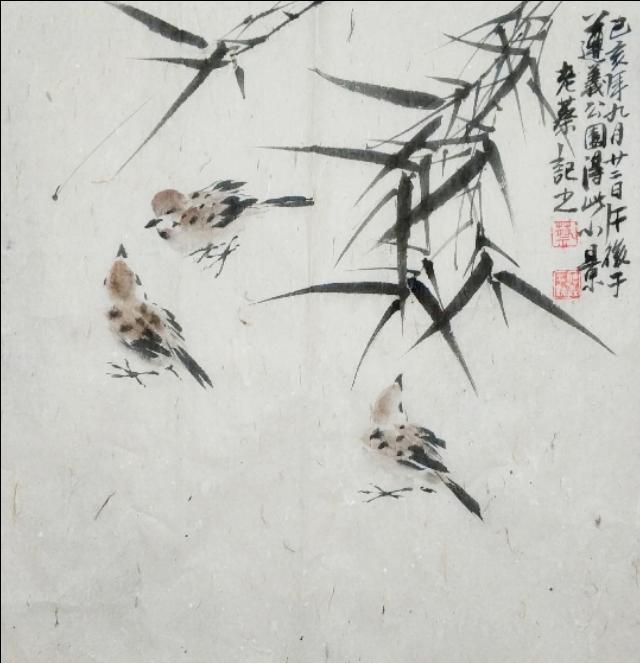 己亥年九月廿二日午後于
遵義公園得此小景
老蔡記之